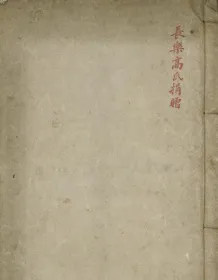 長樂高氏捐贈